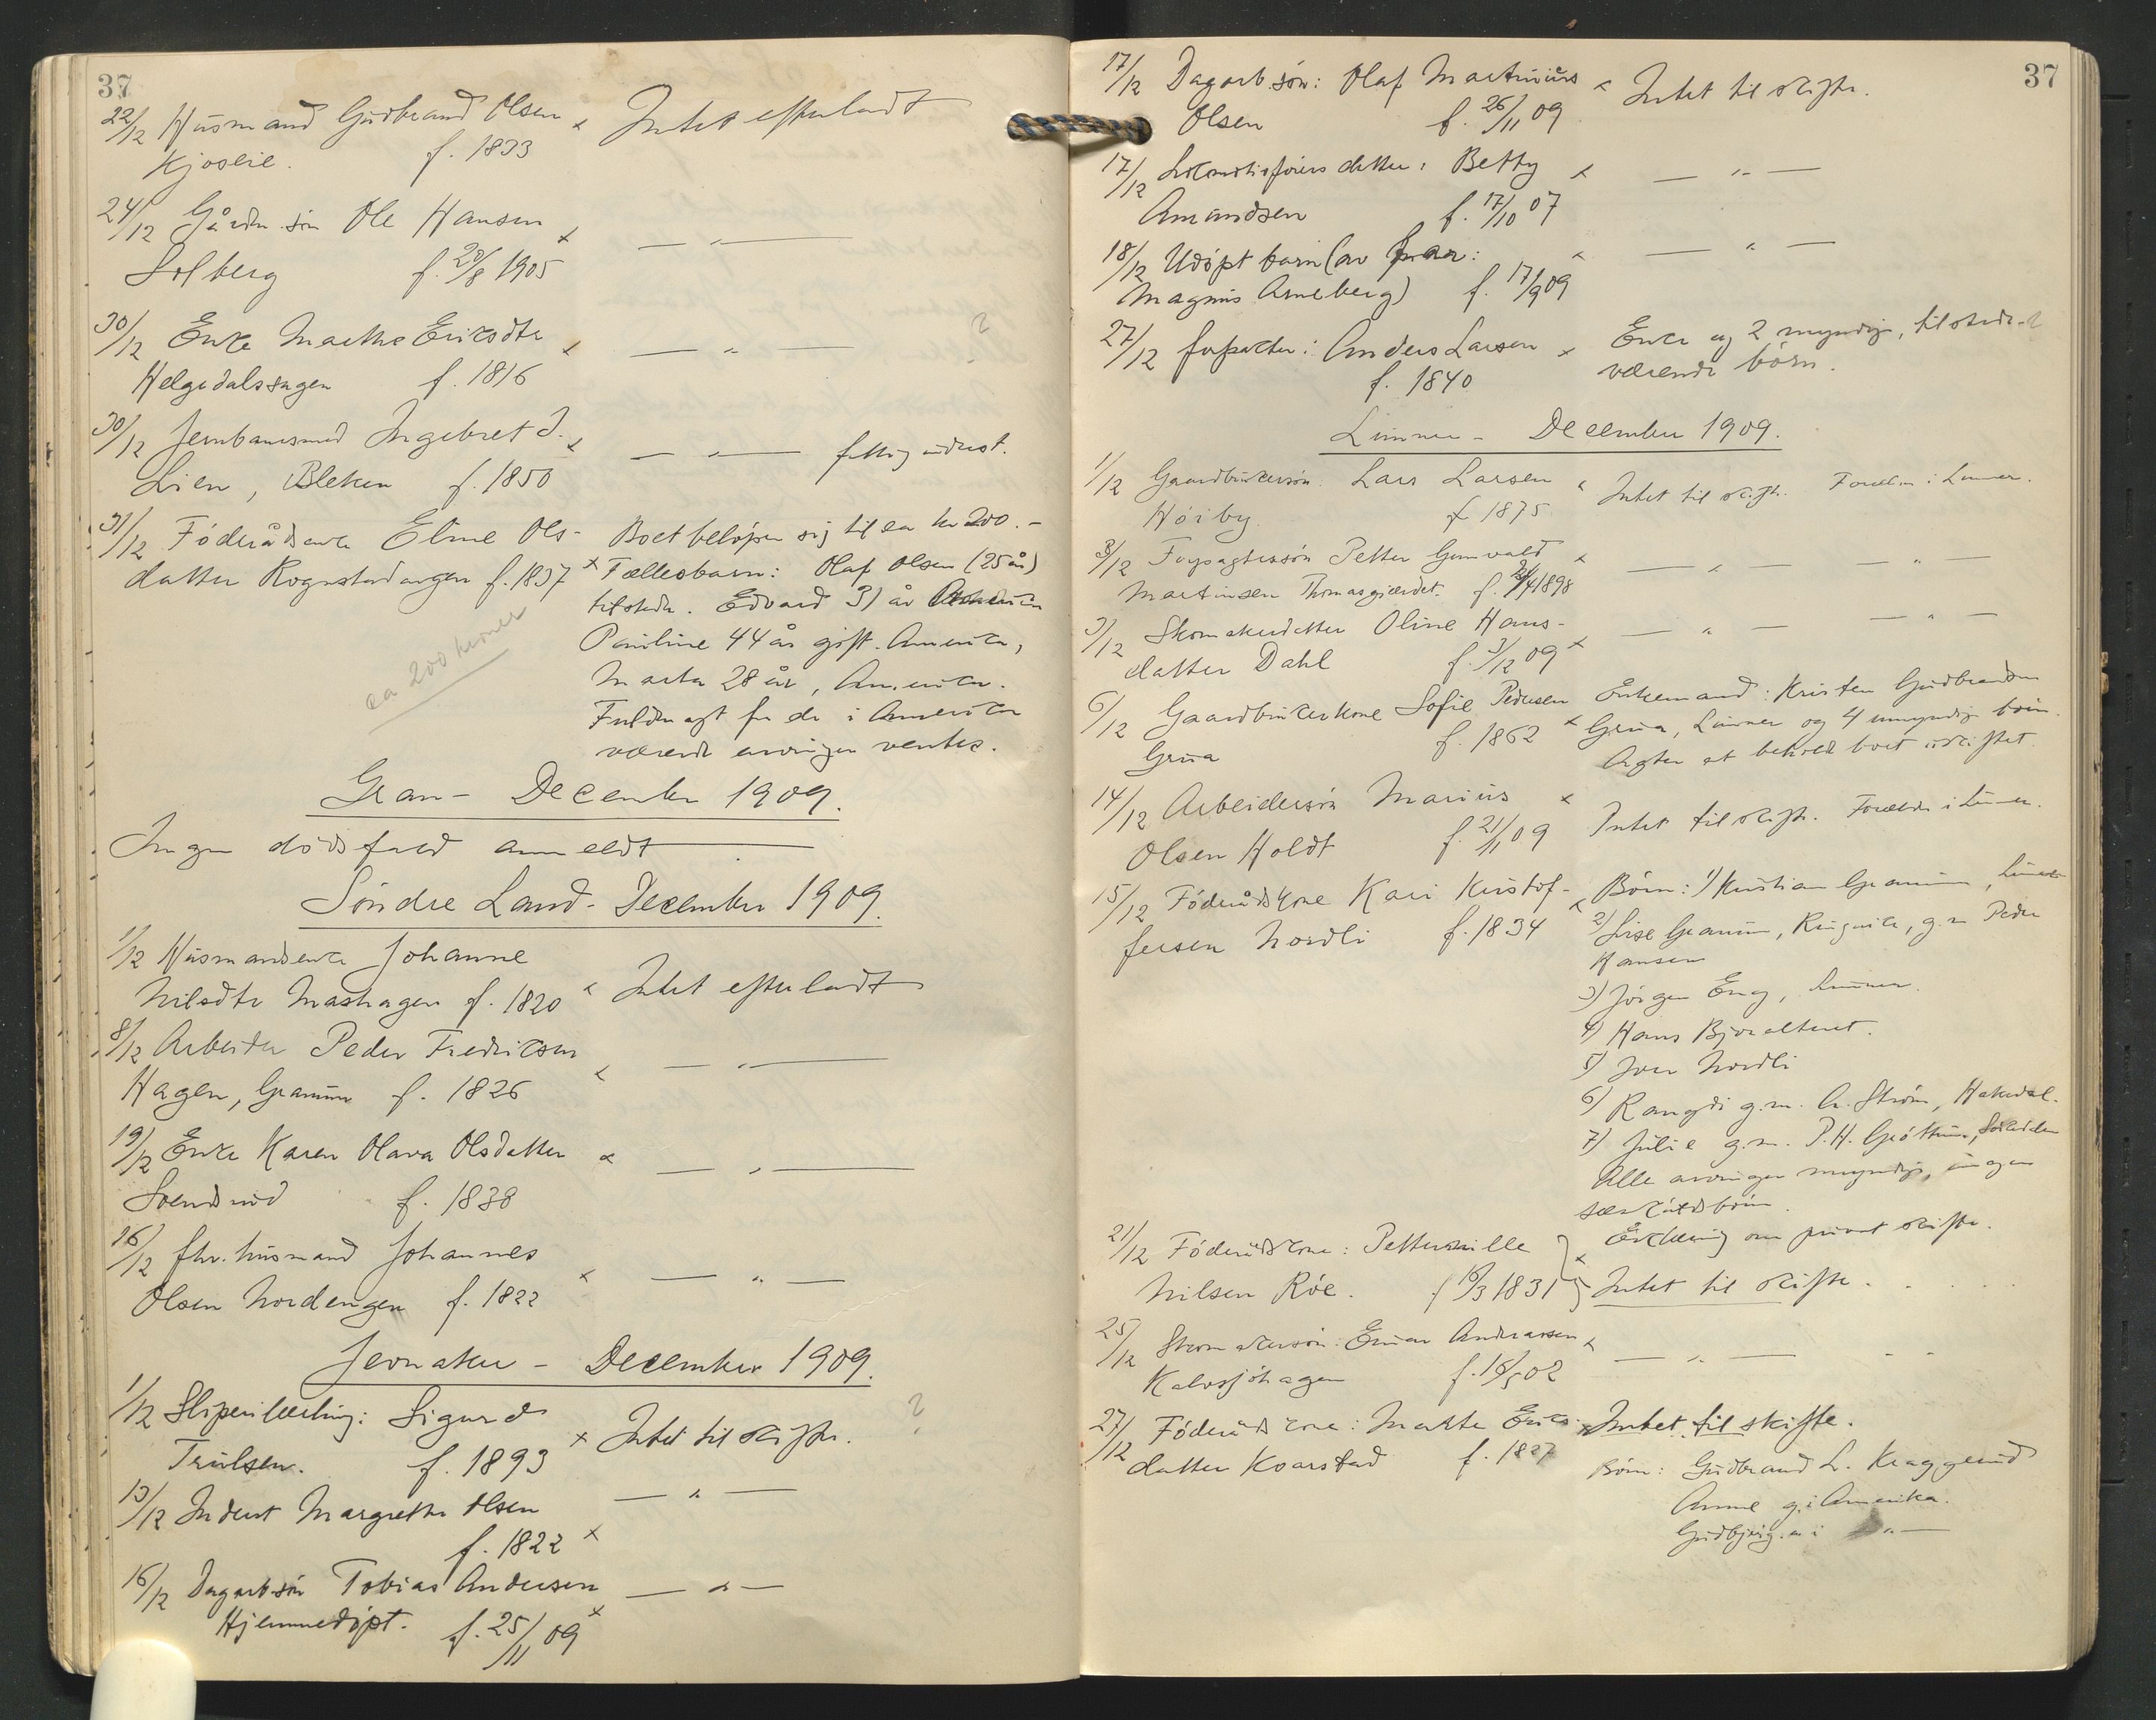 37
22/12 Husmand Gudbrand Olsen × Intet efterladt
Kjoslie. f. 1833
24/12 Gårdm. søn Ole Hansen × — „ —
Solberg f. 20/8 1905
30/12 Enke Marthe Eriksdtr × — „ — ?
Helgedalssagen f. 1816
30/12 Jernbanesmed Ingebret J. × — „ — fattigunderst.
Lien, Bleken f. 1850
31/12 Föderådsenke Eline Ols- Boet beløper sig til ca kr 200.-
datter Rognstadangen f. 1837 × Fællesbarn: Olaf Olsen (25 år)
tilstede. Edvard 31 år Amerika
Pauline 44 år gift. Amerika,
ca 200 kroner
Marta 28 år, Amerika.
Fuldmagt fra de i Amerika
værende arvinger ventes.
Gran - December 1909.
Ingen dödsfald anmeldt
Söndre Land - December 1909.
1/12 Husmandsenke Johanne
Nilsdtr Mashagen f. 1820 × Intet efterladt
8/12 Arbeider Peder Fredriksen
Hagen, Granum f. 1826 × — „ —
19/12 Enke Karen Olava Olsdatter × — „ —
Svendsrud f. 1838
16/12 fhv. husmand Johannes
Olsen Nordengen f. 1822 × — „ —
Jevnaker - December 1909.
1/12 Sliperilærling: Sigurd ?
Trulsen. f. 1893 × Intet til skifte.
13/12 Inderst Margrethe Olsen — „ —
f. 1822 ×
16/12 Dagarb. søn Tobias Andersen — „ —
Hjemmedøpt. f. 25/11 09 ×
37
17/12 Dagarb. søn: Olaf Martinius × Intet til skifte.
Olsen f. 26/11 09
17/12 Lokomotivførers datter: Betty × — „ —
Amundsen f. 17/10 07
18/12 Udøpt barn (av : × — „ —
Magnus Arneberg) f. 17/9 09
27/12 forpakter: Anders Larsen × Enke og 2 myndige, tilstede-
f. 1840 værende börn.
Lunner - December 1909.
1/12 Gaardbrukersøn. Lars Larsen × Intet til skifte. Forældre i Lunner.
Höiby. f 1875
3/12 Forpagtersøn Petter Gunvald × — „ — — „ —
Martinsen Thomasgjærdet. f. 24/4 1898
3/12 Skomakerdatter Oline Hans- — „ — — „ —
datter Dahl f. 3/12 09 ×
6/12 Gaardbrukerkone Sofie Pedersen Enkemand: Kristen Gudbrandsen
Grua f. 1862 × Grua, Lunner og 4 umyndige börn.
Agter at beholde boet uskiftet.
14/12 Arbeidersøn Marius ×
Olsen Holdt f. 21/11 09 Intet til skifte. Forældre i Lunner.
15/12 Föderådskone Kari Kristof- × Börn: 1) Kristian Granum, Lunner
fersen Nordli f. 1834 2) Lise Granum, Ringerike, g. m Peder
Hansen
3) Jörgen Eng, Lunner.
4) Hans Bjoralteret.
5) Iver Nordli
6) Rangdi g.m. A. Ström, Hakedal.
7) Julie g.m. P.H. Gröttum,
Alle arvinger myndige, ingen
særkuldsbörn.
Erklæring om privat skifte.
21/12 Föderådskone: Petternille
Nilsen Röe. f 16/3 1831 × Intet til skifte.
25/12 Skomakersøn: Einar Andreassen × — „ — „
Kalvsjöhagen f. 16/5 02
27/12 Föderådskone: Marte Eriks- × Intet til skifte.
datter Koarstad f. 1827
Börn: Gudbrand L. Kraggerud
Anne g. i Amerika.
Gudbjörg. m i — „ —